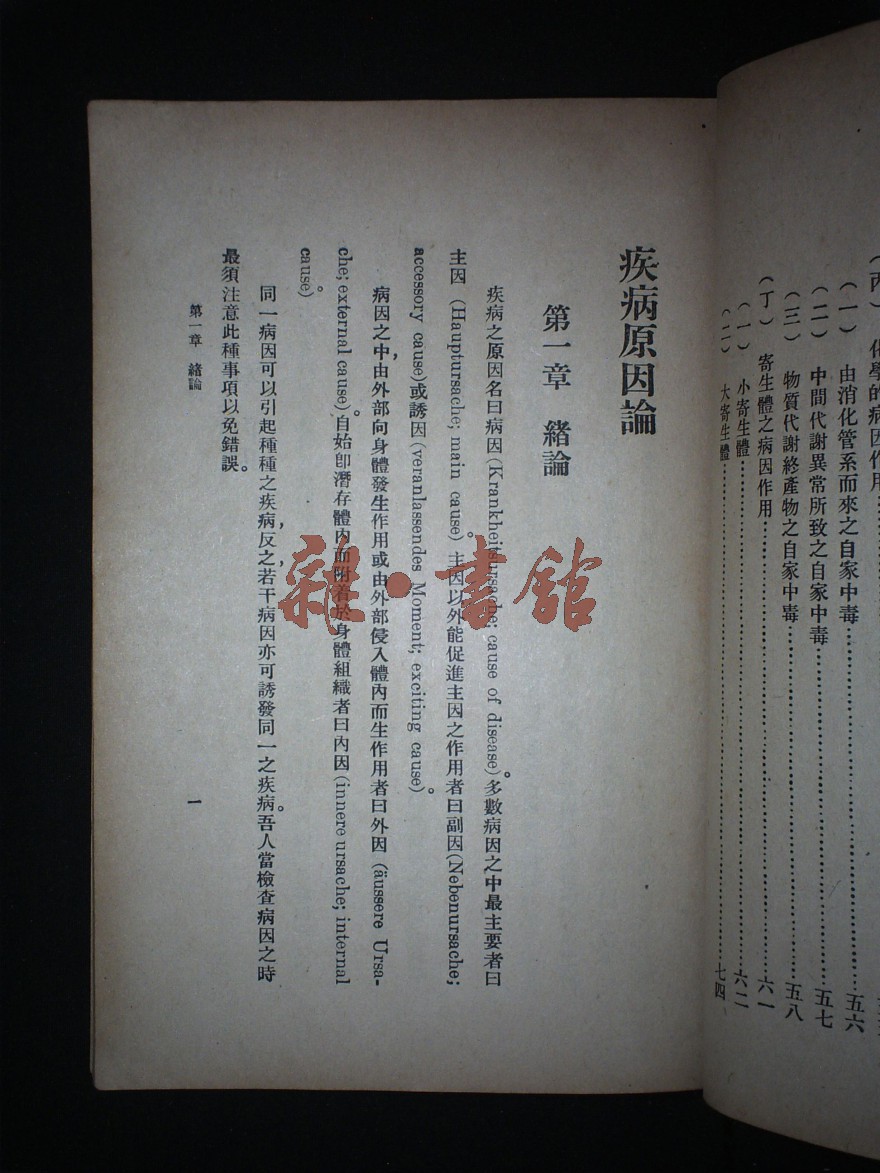 化學的病因作用
(一) 由消化管系而來之自家中毒……五六
(二) 中間代謝異常所致之自家中毒……五七
(三) 物質代謝終產物之自家中毒……五八
(丁) 寄生體之病因作用……六一
(一) 小寄生體……六二
(二) 大寄生體……七四
疾病原因論
第一章 緒論
疾病之原因名曰病因(Krankheitsursache; cause of disease)。多數病因之中最主要者曰
主因 (Hauptursache; main cause)。主因以外能促進主因之作用者曰副因(Nebenursache;
accessory cause)或誘因(veranlassendes Moment; exciting cause)。
病因之中,由外部向身體發生作用或由外部侵入體內而生作用者曰外因 (äussere Ursa-
che; external cause)。自始卽潛存體內而附着於身體組織者曰內因(innere ursache; internal
cause)。
同一病因可以引起種種之疾病,反之,若干病因亦可誘發同一之疾病。吾人當檢查病因之時
最須注意此種事項以免錯誤。
第一章 緒論
一
雜·書館